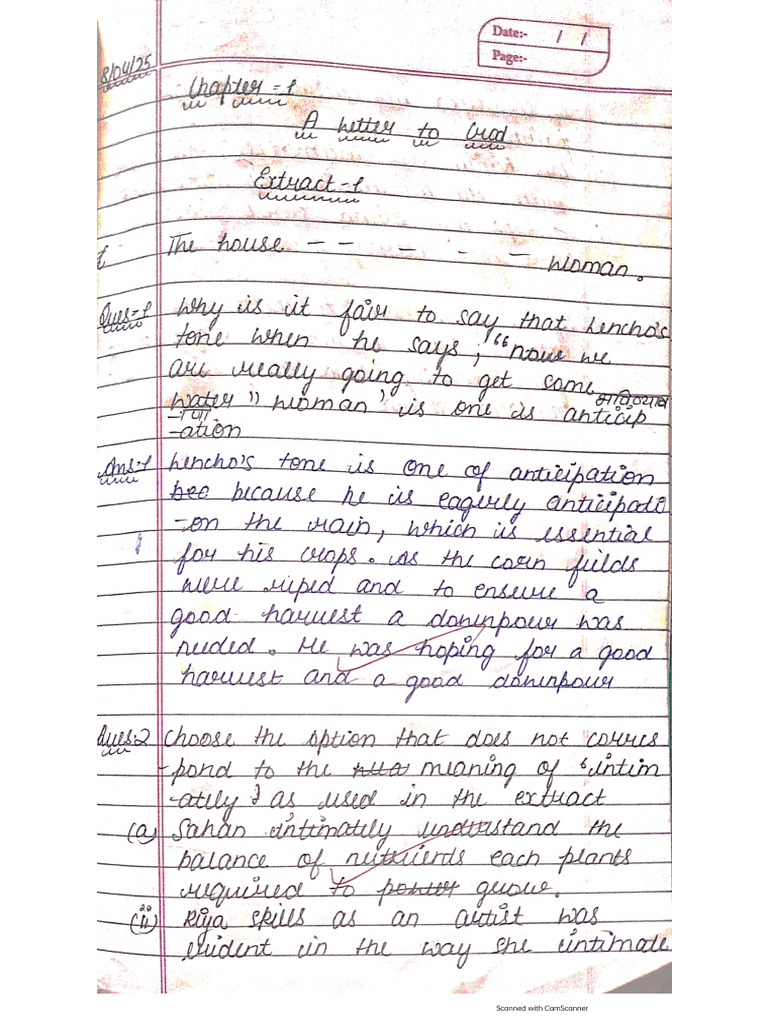 Date:- / /
Page:-
8/04/25
Chapter-1
A Letter to God
Extract-1
The house - - - - - woman.
Ques-1 Why is it fair to say that Lencho's
tone when he says, "now we
are really going to get some
water" woman' is one is anticip
-ation
Ans-1 Lencho's tone is one of anticipation
bec because he is eagerly anticipati
-on the rain, which is essential
for his crops. As the corn fields
were riped and to ensure a
good harvest a downpour was
needed. He was hoping for a good
harvest and a good downpour
Ques-2 Choose the option that does not corres
-pond to the meaning of 'intim
-ately' as used in the extract
(a) Sahan intimately understand the
balance of nutrients each plants
required to grow.
(ii) Riya skills as an artist was
evident in the way she intimate
Scanned with CamScanner